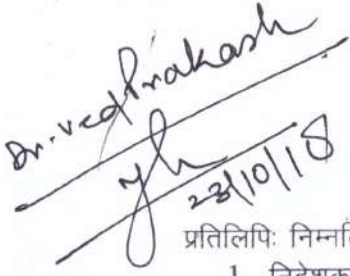 Dr. Ved Prakash
23/10/18
प्रतिलिपिः निम्नलि
1. निदेशक